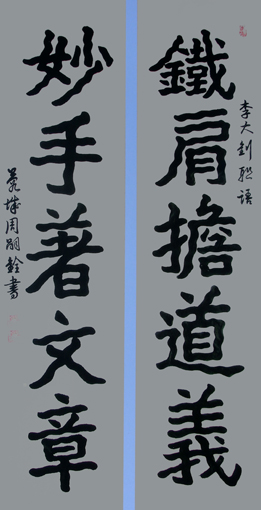 鐵肩擔道義
李大釗聯語
妙手著文章
周嗣銓書